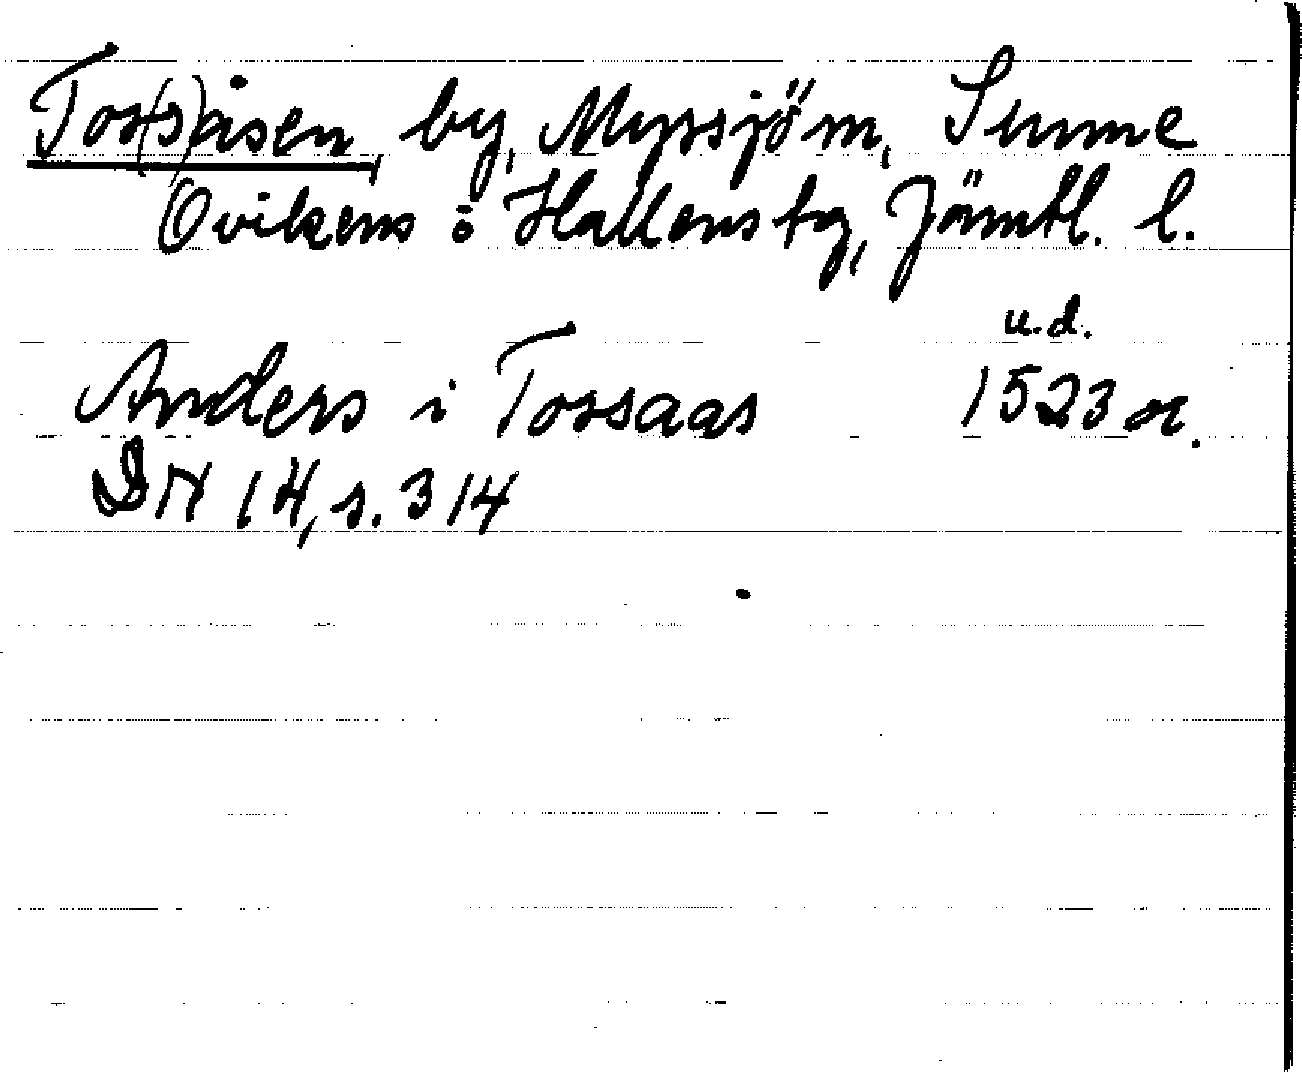 Tos(s)åsen, by, Myssjö sn, Sunne
Ovikens o Hallens tg, Jämtl. l.
u.d.
Anders i Tossaas 1523 or.
DN 14, s. 314